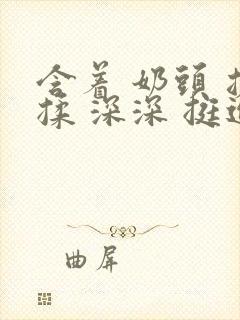 含着 奶頭 
揉 深深 挺
曲屏